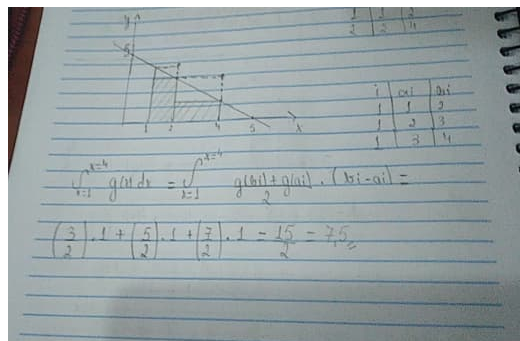 1 2 2
2 2 4
y
5
1 2 4 5 x
i ai bi
1 1 2
1 2 3
1 3 4
∫ˣ⁼⁴ₓ₌₁ g(x) dx = ∫ˣ⁼⁴ₓ₌₁ g(bi)+g(ai)/2 . (bi-ai) =
(3/2).1 + (5/2).1 + (7/2).1 = 15/2 = 7,5